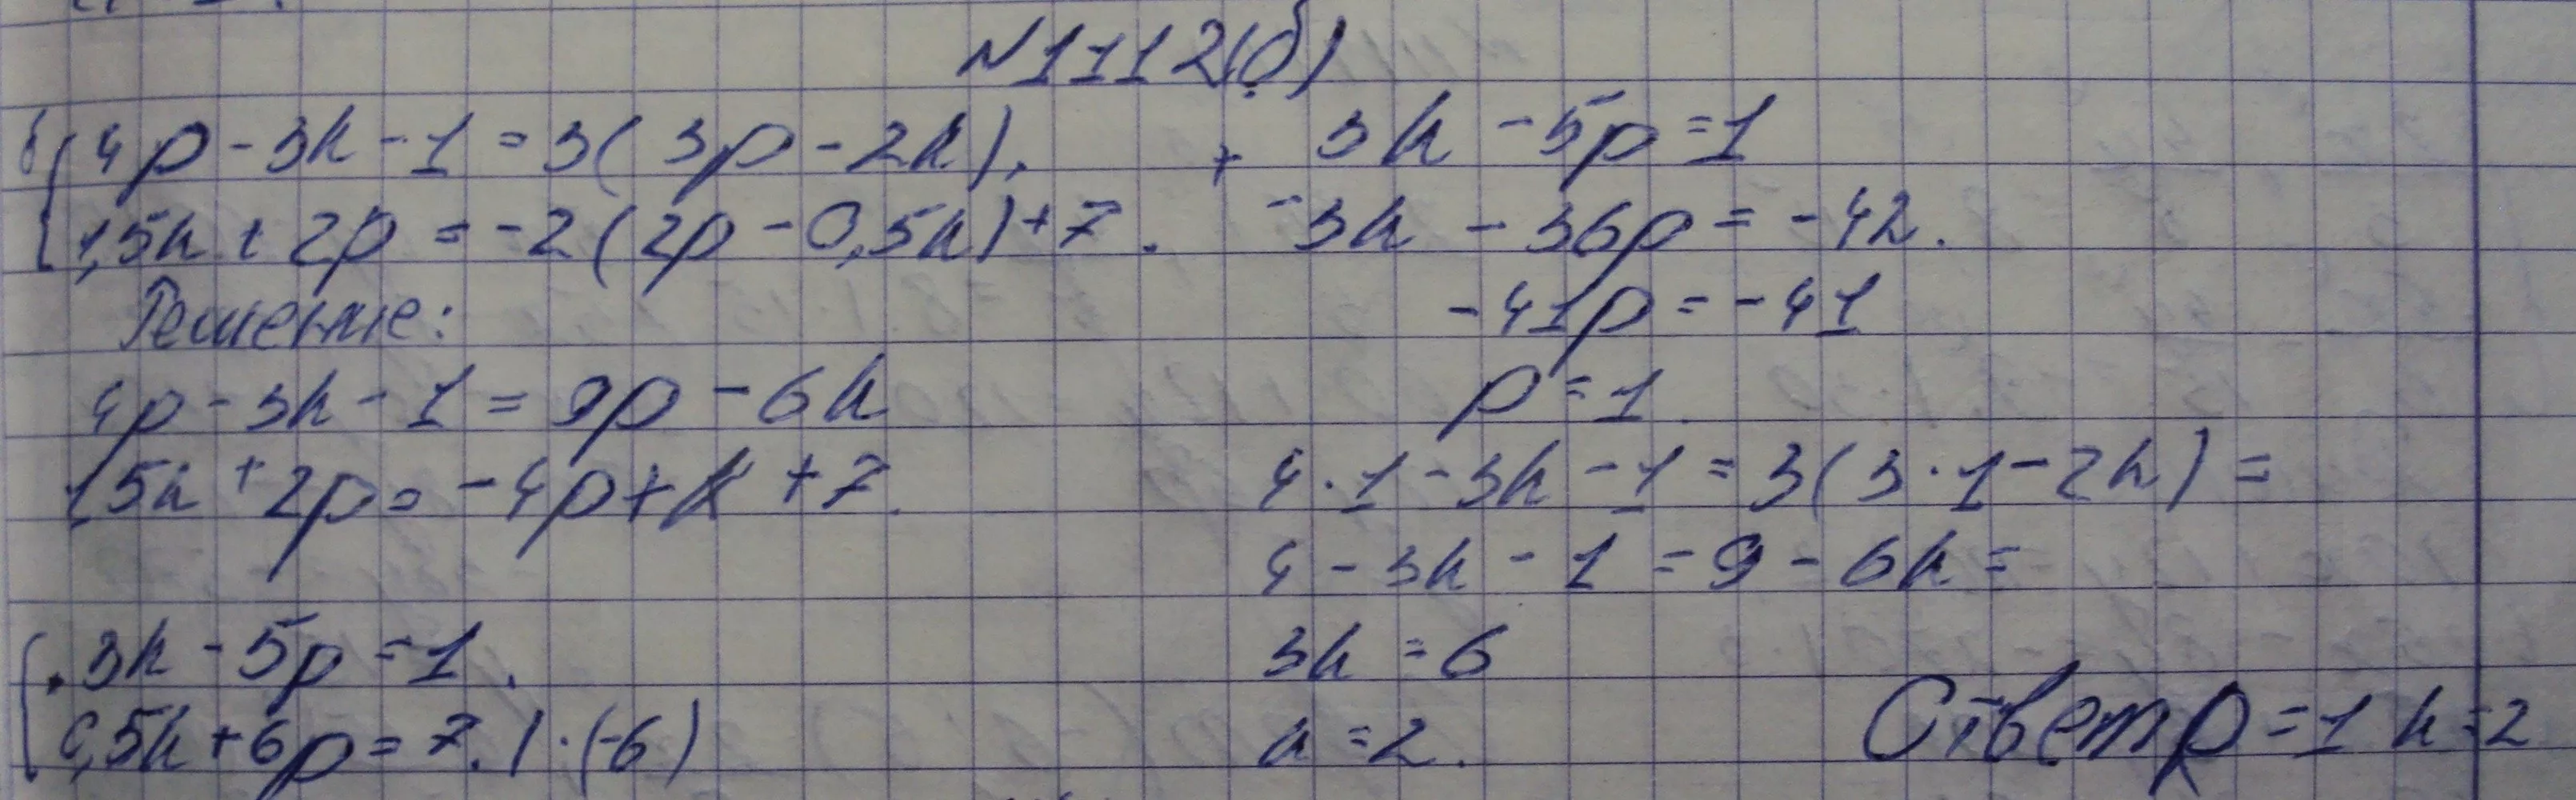 N1112(б)
б 4p - 3k - 1 = 3(3p - 2k),
1,5k + 2p = -2(2p - 0,5k) + 7.
Решение:
4p - 3k - 1 = 9p - 6k
1,5k + 2p = -4p + k + 7.
3k - 5p = 1.
0,5k + 6p = 7. | · (-6)
+ 3k - 5p = 1
-3k - 36p = -42.
-41p = -41
p = 1
4 · 1 - 3k - 1 = 3(3 · 1 - 2k) =
4 - 3k - 1 = 9 - 6k =
3k = 6
k = 2.
Ответ p = 1 k = 2